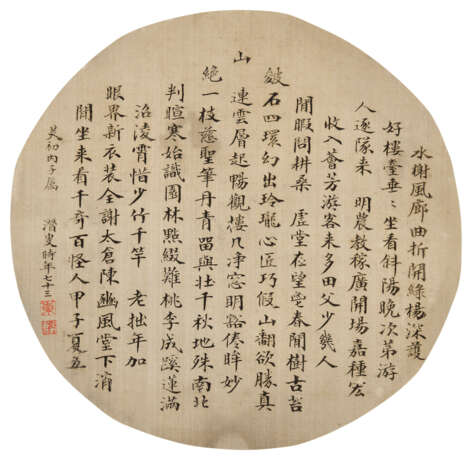 水榭風廊曲折開綠楊深護
好樓臺垂=坐看斜陽晚次第游
人逐隊來　明農教稼廣開場嘉種宏
收入薈芳游客來多田父少幾人
閒暇問耕桑　虛堂在望堂春開樹古苔
皴石四環幻出玲瓏心匠巧假山翻欲勝真
山　連雲層起暢觀樓几凈窓明豁倦眸妙
絕一枝慈聖筆丹青留與壯千秋地殊南北
判暄寒始識園林點綴難桃李成蹊蓮滿
沼凌霄惜少竹千竿　老拙年加
眼界新衣裝全謝太倉陳豳風堂下消
閒坐来看千奇百怪人甲子夏五
笑初内子屬　潛叟時年七十三